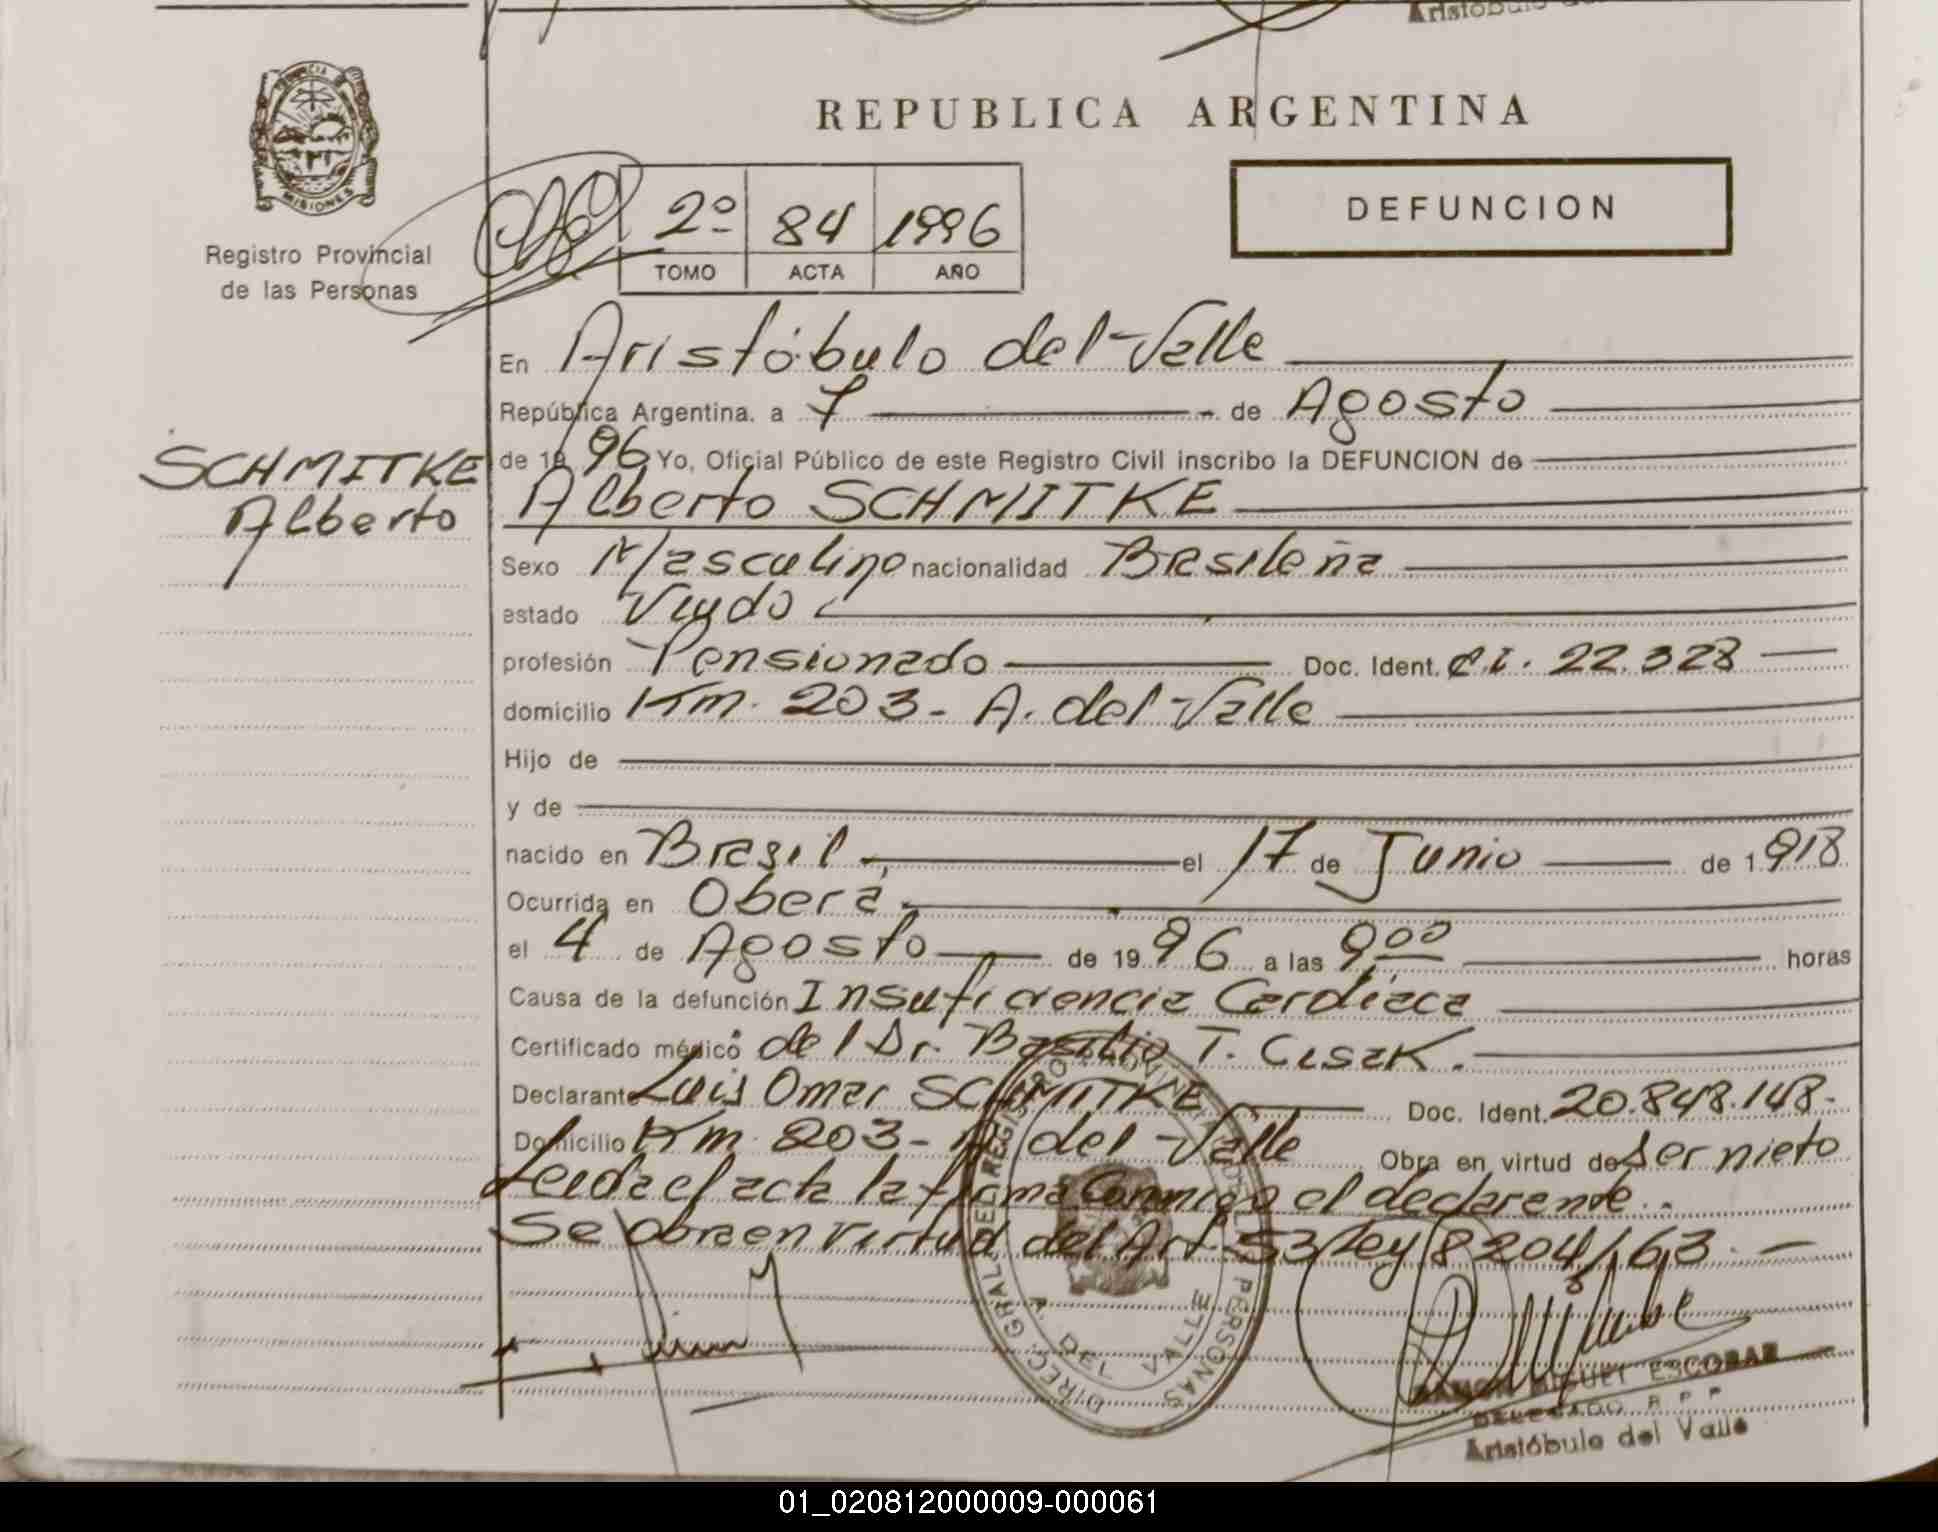 Aristóbulo
PROVINCIA DE
MISIONES
REPUBLICA ARGENTINA
DEFUNCION
2º 84 1996
TOMO ACTA AÑO
Registro Provincial
de las Personas
En Aristóbulo del Valle
República Argentina. a 7 de Agosto
SCHMITKE
Alberto
de 1996 Yo, Oficial Público de este Registro Civil inscribo la DEFUNCION de
Alberto SCHMITKE
Sexo Masculino nacionalidad Brasileña
estado Viudo
profesión Pensionado Doc. Ident. C.I. 22.328
domicilio Km. 203- A. del Valle
Hijo de
y de
nacido en Brasil, el 17 de Junio de 1.918
Ocurrida en Oberá
el 4 de Agosto de 1996 a las 9,00 horas
Causa de la defunción Insuficiencia Cardíaca
Certificado médico del Dr. Basilio T. Cisak.
Declarante Luis Omar SCHMITKE Doc. Ident. 20.848.148-
Domicilio Km. 203- A. del Valle Obra en virtud de ser nieto
Leida el acta la firma conmigo el declarante.
Se obra en virtud del Art. 53 Ley 8204/63.-
DIREC. GRAL. DEL REGISTRO PROVINCIAL DE LAS PERSONAS
A. DEL VALLE
RAMON MIGUEL ESCOBAR
DELEGADO R. P. P.
Aristóbulo del Valle
01_020812000009-000061